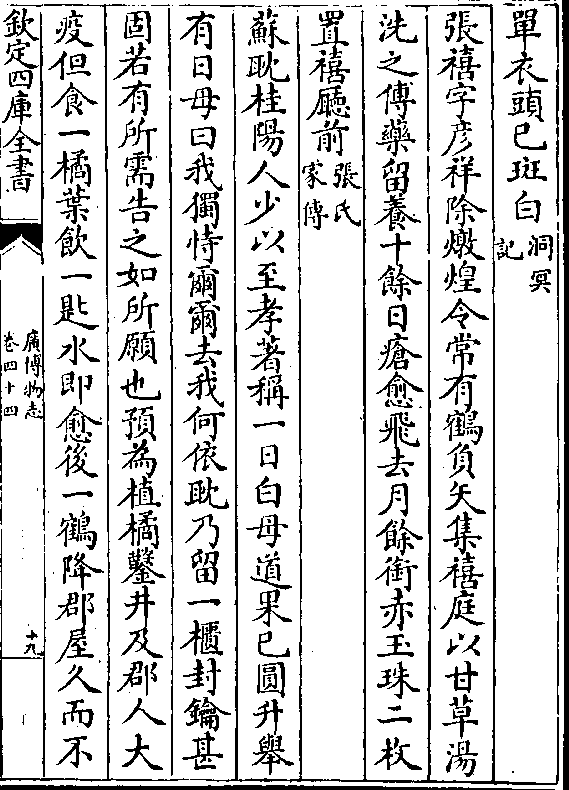 單衣頭已斑白洞冥記
張禧字彦祥除燉煌令常有鶴負矢集禧庭以甘草湯
洗之傅藥留養十餘日瘡愈飛去月餘銜赤玉珠二枚
置禧廳前張氏家傳
蘇耽桂陽人少以至孝著稱一日白母道果已圓升舉
有日母曰我獨恃爾爾去我何依耽乃留一櫃封鑰甚
固若有所需告之如所願也預為植橘鑿井及郡人大
疫但食一橘葉飲一匙水即愈後一鶴降郡屋久而不
欽定四庫全書
廣博物志
卷四十四
十九